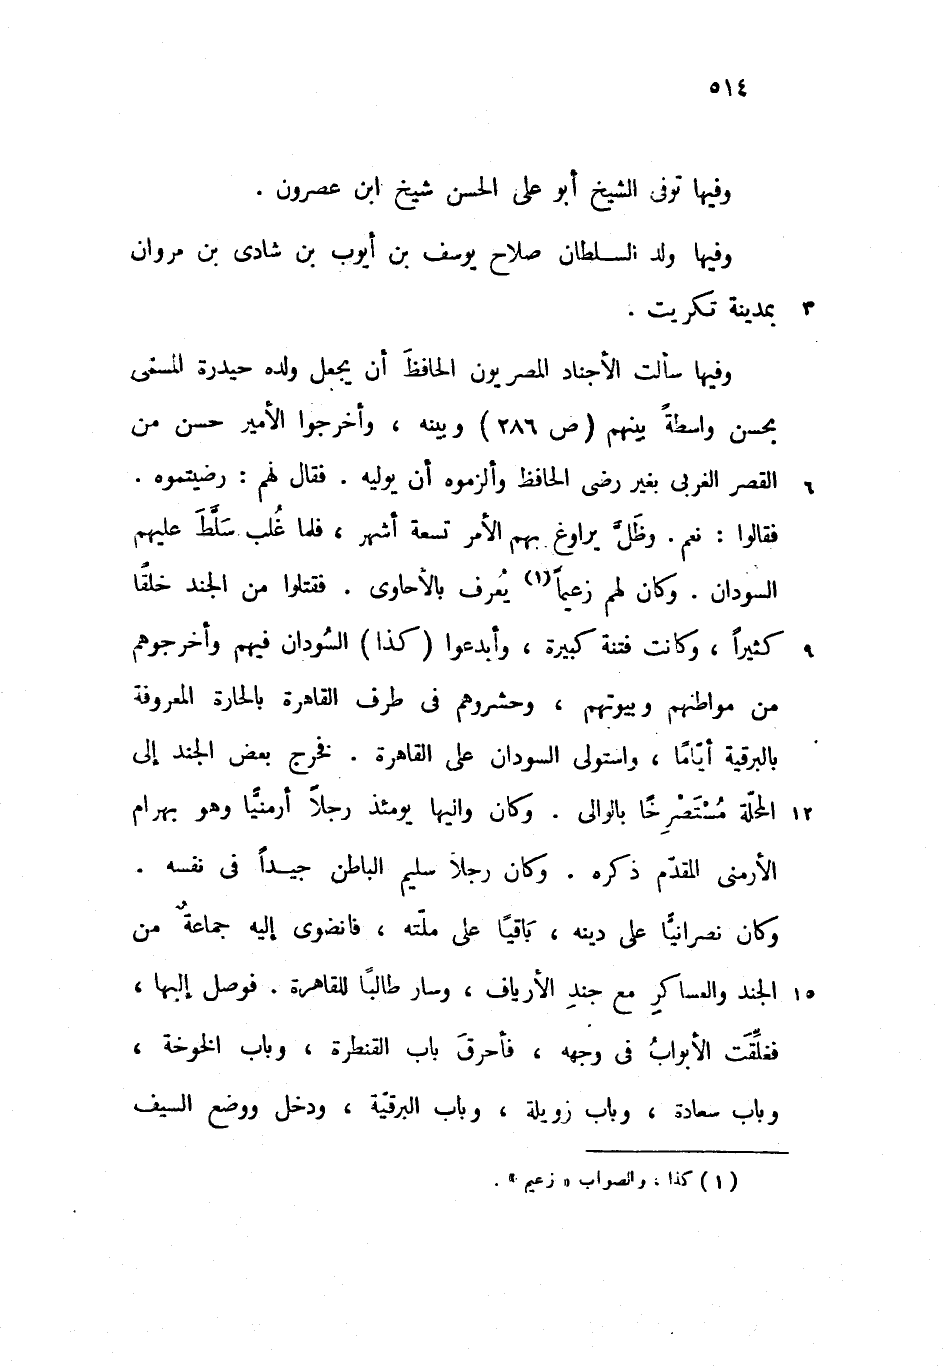 ٥١٤
وفيها توفى الشيخ أبو على الحسن شيخ ابن عصرون .
وفيها ولد السلطان صلاح يوسف بن أيوب بن شادى بن مروان
٣ بمدينة تكريت .
وفيها سألت الأجناد المصريون الحافظَ أن يجعل ولده حيدرة المسمّى
بحسن واسطةً بينهم (ص ٢٨٦) وبينه ، وأخرجوا الأمير حسن من
٦ القصر الغربى بغير رضى الحافظ وألزموه أن يوليه . فقال لهم : رضيتموه .
فقالوا : نعم . وظَلَّ يراوغ بهم الأمر تسعة أشهر ، فلما غُلب سَلَّطَ عليهم
السودان . وكان لهم زعيماً(١) يُعرف بالأحاوى . فقتلوا من الجند خلقًا
٩ كثيراً ، وكانت فتنة كبيرة ، وأبدعوا (كذا) السُودان فيهم وأخرجوهم
من مواطنهم وبيوتهم ، وحشروهم فى طرف القاهرة بالحارة المعروفة
بالبرقية أيّامًا ، واستولى السودان على القاهرة . فخرج بعض الجند إلى
١٢ المحلّة مُسْتَصْرِخًا بالوالى . وكان واليها يومئذ رجلاً أرمنيًّا وهو بهرام
الأرمنى المقدّم ذكره . وكان رجلا سليم الباطن جيداً فى نفسه .
وكان نصرانيًّا على دينه ، بَاقيًا على ملّته ، فانضوى إليه جماعةٌ من
١٥ الجند والعساكرِ مع جندِ الأرياف ، وسار طالبًا للقاهرة . فوصل إليها ،
فغلِّقَت الأبوابُ فى وجهه ، فأحرقَ باب القنطرة ، وباب الخوخة ،
وباب سعادة ، وباب زويلة ، وباب البرقيّة ، ودخل ووضع السيف
(١) كذا ، والصواب « زعيم » .